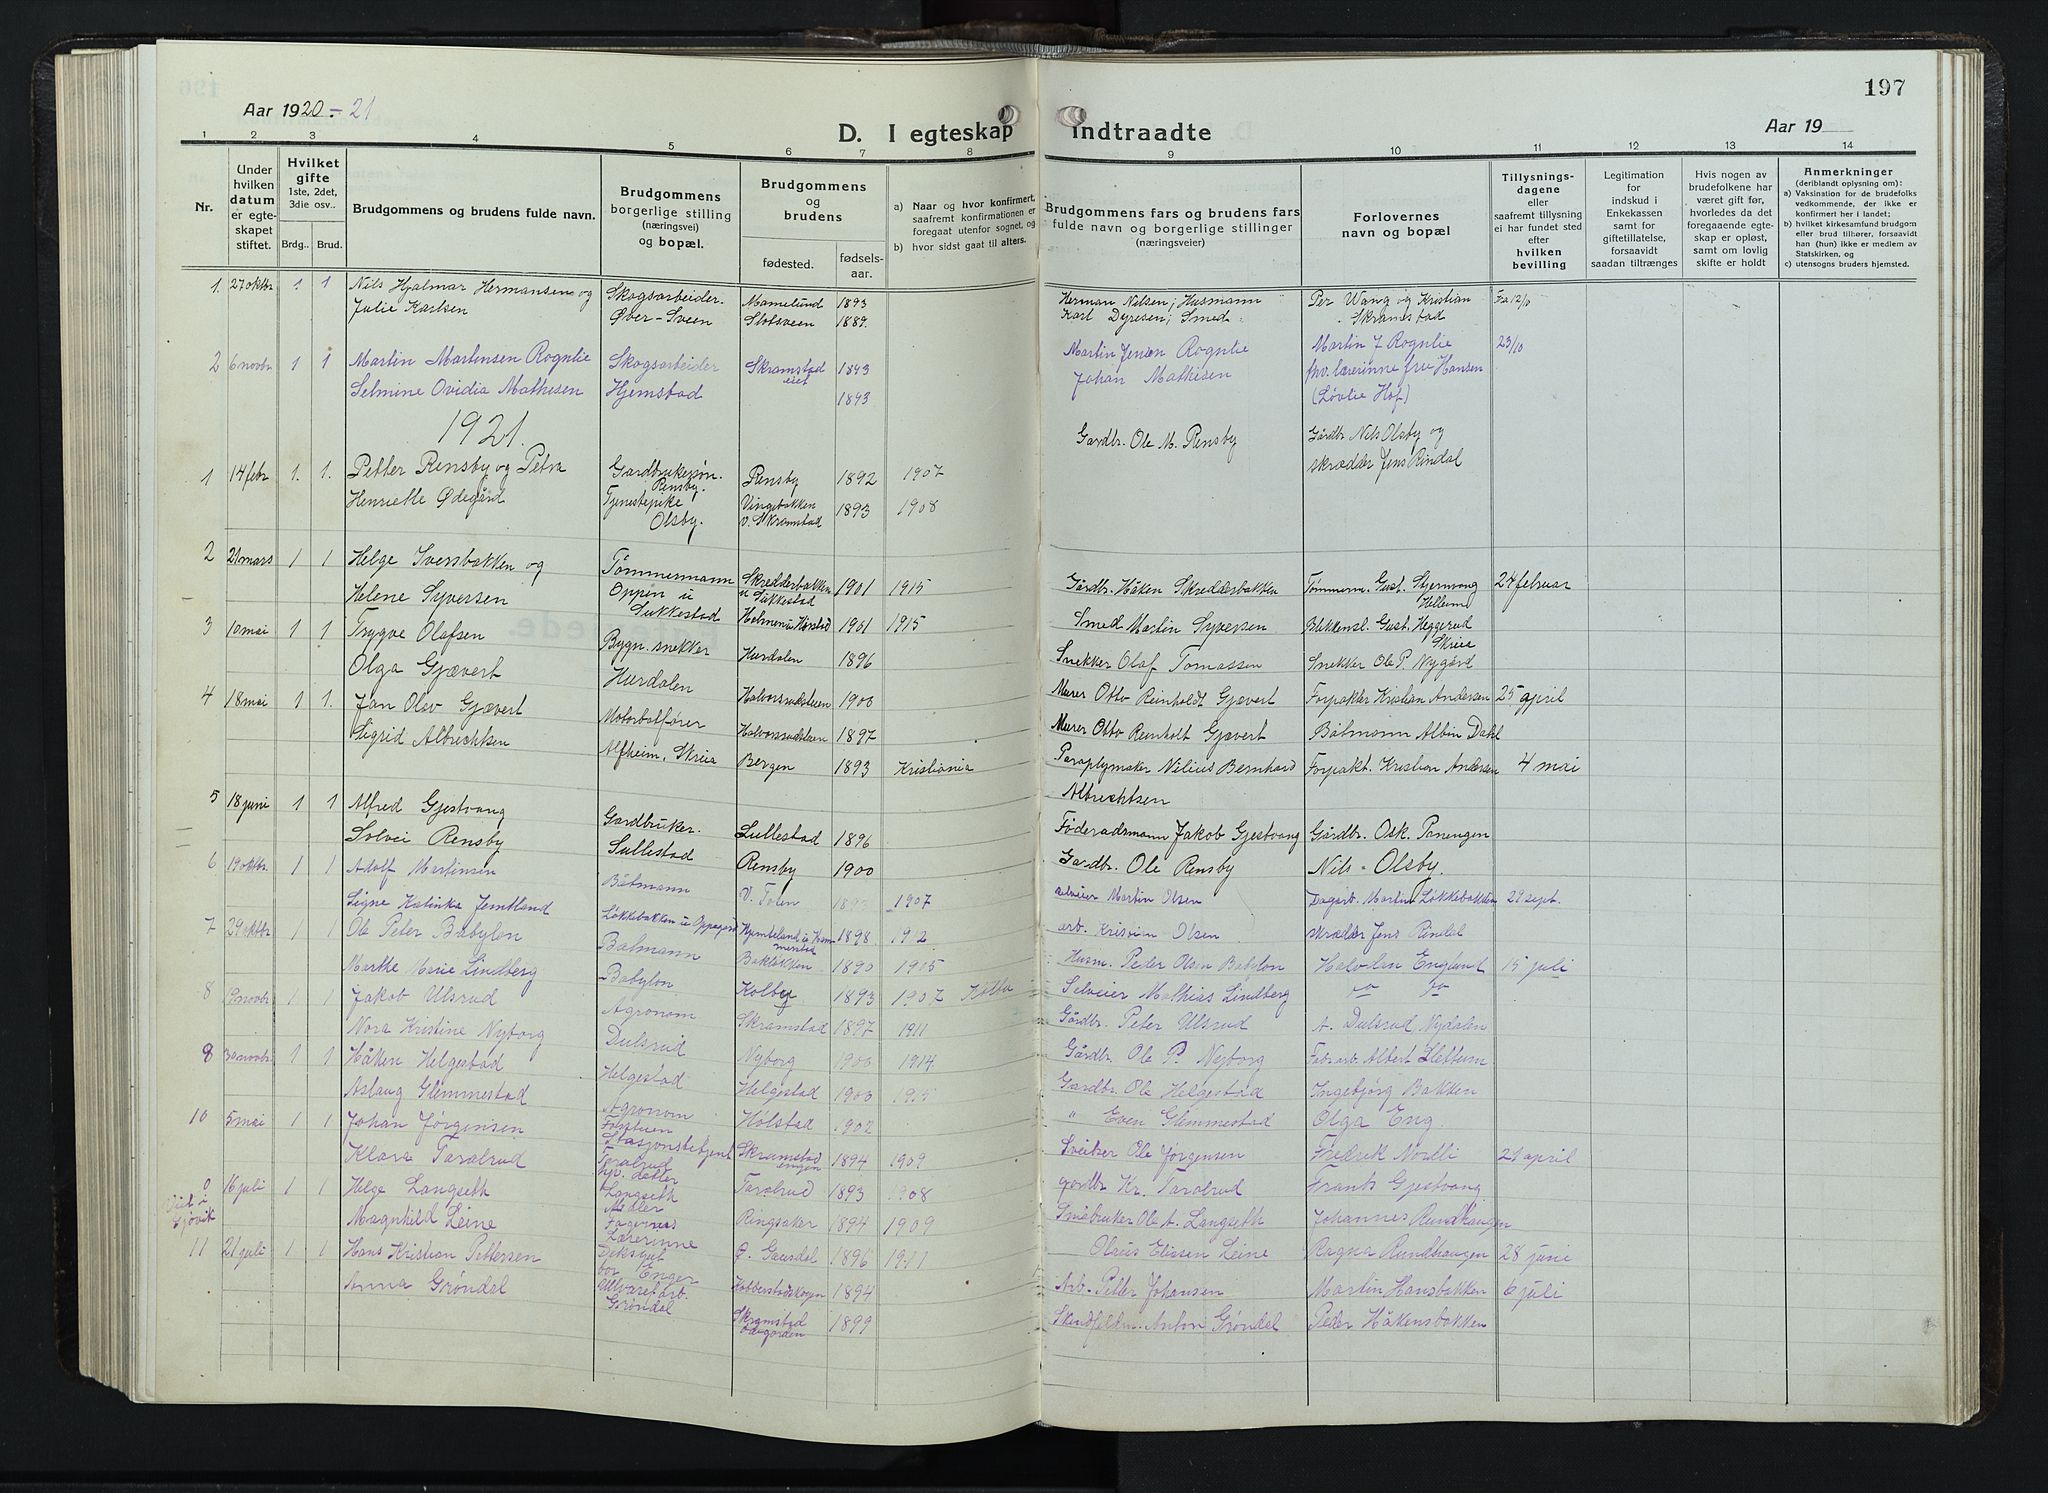 Aar 1920-21
D. I egteskap
1 2 3 4 5 6 7 8
Nr.
Under hvilken datum er egteskapet stiftet.
Hvilket gifte
1ste, 2det, 3die osv..
Brdg.. Brud.
Brudgommens og brudens fulde navn.
Brudgommens
borgerlige stilling
(næringsvei)
og bopæl.
Brudgommens
og
brudens
fødested.
fødsels-
aar.
a) Naar og hvor konfirmert, saafremt konfirmationen er foregaat utenfor sognet, og
b) hvor sidst gaat til alters.
1. 27 oktbr 1 1 Nils Hjalmar Hermansen og Skogsarbeider. Mamelund 1893
Julie Karlsen Øver-Sveen Slotsveen 1889.
2 6 novbr 1 1 Martin Martensen Rognlie Skogsarbeider Skramstad eiet 1893
Selmine Ovidia Mathisen Hjemstad 1893
1921.
1 14 febr 1. 1. Petter Rensby og Petra Gardbrukersøn. Rensby. Rensby 1892 1907
Henriette Ødegård Tjenestepike Olsby. Vingebakken v. Skramstad 1893 1908
2 21 mars 1 1 Helge Iversbakken og Tømmermann Skredderbakken u Sukkestad 1901 1915
Helene Syversen Oppen u Sukkestad Holmen u Hørstad 1901 1915
3 10 mai 1 1 Trygve Olafsen Bygn. snekker Hurdalen 1896
Olga Gjævert Hurdalen Halvorsrudsteen 1900
4 18 mai 1 1. Jan Olav Gjævert Motorbotfører Halvorsrudsteen 1897
Sigrid Albrechtsen Alfheim, Skreia Bergen 1893 Kristiania
5 18 juni 1 1 Alfred Gjestvang Gardbruker. Lullestad 1896
Solvei Rensby Sullestad Rensby 1900
6 19 oktbr 1 1 Adolf Martinsen Båtmann V. Toten 1907
Signe Katinka Jemtland Løkkebakken u Oppegård 1898 1912
7 29 oktbr 1 1 Ole Peter Babylon Båtmann Bakbakken 1890 1905
Marthe Marie Lindberg Babylon Kolby 1893 1907 Kolbu
8 19 novbr 1 1 Jakob Ulsrud Agronom Skramstad 1897 1911
Nora Kristine Nyborg Dulsrud Nyborg 1900 1914
9 30 novbr 1 1 Håken Helgestad Helgestad Helgestad 1900 1915
Aslaug Glemmestad Agronom Hølstad 1902
10 5 mai 1 1 Johan Jørgensen Stasjonsbetjent Skramstad engen 1894 1909
Klara Taralrud Taralrud Taralrud 1893 1908
0 16 juli 1 1 Helge Langseth Langseth Ringsaker 1894 1909
Viet i Gjøvik
Magnhild Leine Lærerinne Ø. Gausdal 1896 1911
11 21 juli 1 1 Hans Kristian Pettersen bor Enger 1894
Anna Grøndal Ullvarefarb. Grøndal Skramstad ødegården 1899
197
Indtraadte
Aar 19
9 10 11 12 13 14
Brudgommens fars og brudens fars
fulde navn og borgerlige stillinger
(næringsveier)
Forlovernes
navn og bopæl
Tillysnings-
dagene
eller
saafremt tillysning
ei har fundet sted
efter
hvilken
bevilling
Legitimation
for
indskud i
Enkekassen
samt for
giftetillatelse,
forsaavidt
saadan tiltrænges
Hvis nogen av
brudefolkene har
været gift før,
hvorledes da det
foregaaende egte-
skap er opløst,
samt om lovlig
skifte er holdt
Anmerkninger
(deriblandt oplysning om):
a) Vaksination for de brudefolks vedkommende, der ikke er konfirmert her i landet;
b) hvilket kirkesamfund brudgom eller brud tilhører, forsaavidt han (hun) ikke er medlem av Statskirken, og
c) utensogns bruders hjemsted.
Herman Nilsen; Husmann Per Wang og Kristian Fra 12/10
Karl Dyresen; Smed. Skramstad
Martin Jensen Rognlie Martin J Rognlie 23/10
Johan Mathisen fhv. lærerinne fru Hansen
(Løvlie Hof)
Gardbr. Ole M. Rensby Gårdbr Nils Olsby og
skrædder Jens Rindal
Gårdbr. Håken Skredderbakken Tømmerm. Gust. Stjernvong 24 februar
Smed Martin Syversen Blikkensl. Gust. Heggerud Skreia
Snekker Olaf Tomassen Snekker Ole P. Nygård
Murer Otto Reinholdt Gjævert Forpakter Kristian Andersen 25 april
Murer Otto Reinholt Gjævert Båtmann Albin Dahl
Paraplymaker Nilius Bernhard Forpakt. Kristian Andersen 4 mai
Albrechtsen
Føderadsmann Jakob Gjestvang Gårdbr. Osk. Panengen
Gardbr. Ole Rensby Nils - Olsby.
selveier Martin Olsen Dagarb. Martin Løkkebakken 29 sept.
arb. Kristian Olsen skrædder Jens Rindal
Husm. Peder Olsen Babylon Halvdan Englund 15 juli
Selveier Mathias Lindberg
Gårdbr. Peter Ulsrud A. Dulsrud Nydalen
Gårdbr. Ole P. Nyborg Fabrarb. Albert Slettum
Gardbr. Ole Helgestad Ingebjørg Bakken
" Even Glemmestad Olga Eng.
Sveitser Ole Jørgensen Fredrik Nordli 21 april
gardbr Kr. Taralrud Frants Gjestvang
Småbruker Ole A. Langseth Johannes Rundhaugen
Olaus Elissen Leine Ragna Rundhaugen 28 juni
Arb. Petter Johansen Martin Hansbakken 6 juli
Skindfeldm. Anton Grøndal Peder Håkensbakken